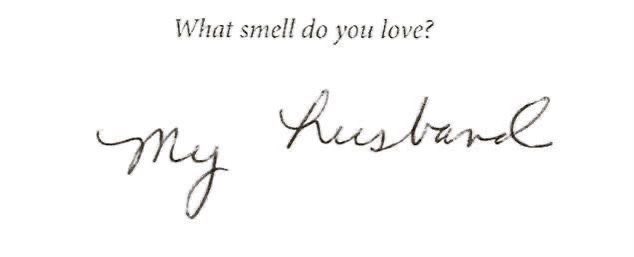 What smell do you love?
My husband